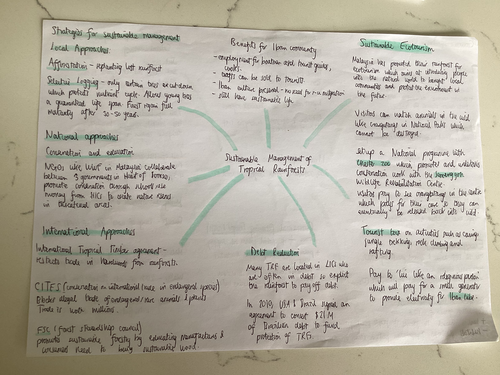 Strategies for sustainable management
Local Approaches
Afforestation - replanting lost rainforest
Selective Logging - only certain trees are cut down
which protects nutrient cycle. Allows young trees
a guaranteed life span. Forest regain full
maturity after 30-50 years.
National approaches
Conservation and education
between 3 governments in Heart of Borneo,
promote conservation through schools
money from
in educational areas.
International Approaches
International Tropical Timber agreement -
restricts trade in hardwoods from rainforests.
CITES (convention on international trade in endangered species)
Blocks illegal trade of endangered rare animals & plants
Trade is worth millions.
FSC (Forest stewardship council)
promotes sustainable forestry by educating manufacturers &
consumers need to buy sustainable wood.
Benefits for Iban community
- employment for boatmen and tourist guides,
cooks.
- crafts can be sold to tourist
- Iban culture focused - no need for r-u migration
- still have sustainable life
Sustainable Management of
Tropical Rainforests.
Debt Reduction
Many TRF are located in LICs who
are often in debt so exploit
the rainforest to pay off debt.
In 2010, USA & Brazil signed an
agreement to convert $21M
of Brazilian debt to fund
protection of TRF.
Sustainable Ecotourism
Malaysia has promoted their rainforest for
ecotourism which aims at introducing people
into the natural world to benefit local
communities and protect the environment in
the future.
Visitors can watch animals in the wild
like orangutangs in National Parks which
cannot be destroyed.
Set up a National programme with
zoo which promotes and undertakes
conservation work with the
Wildlife Rehabilitation Centre
visitors pay to see orangutangs in the centre
which pays for their care so they can
eventually be released back into wild.
Tourist tax on activities such as caving
jungle trekking, rock climbing and
rafting.
Pay to 'live like an indigenous person'
which will pay for a small generator
to provide electricity for Iban tribe.